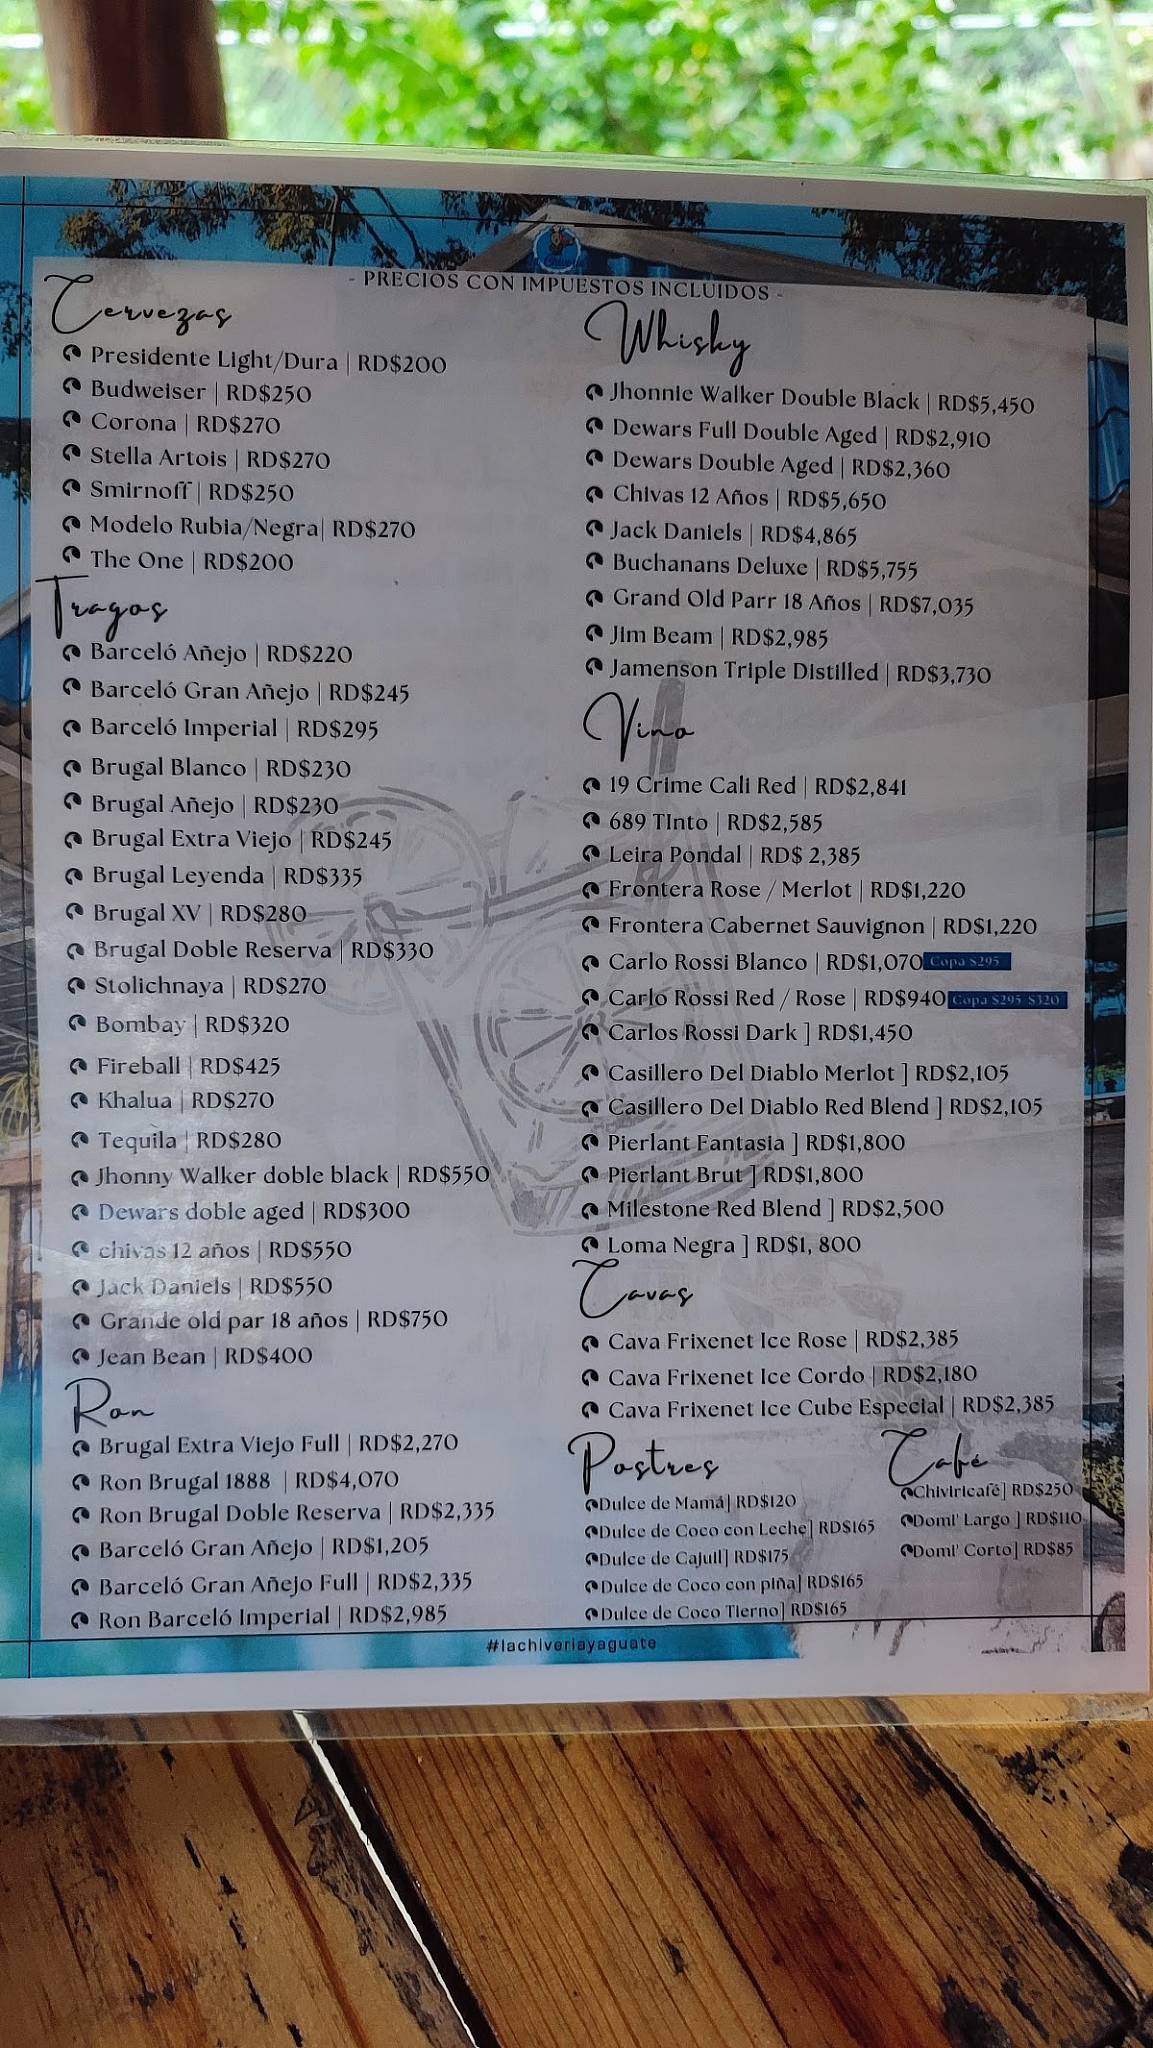 - PRECIOS CON IMPUESTOS INCLUIDOS -
Cervezas
Presidente Light/Dura | RD$200
Budweiser | RD$250
Corona | RD$270
Stella Artois | RD$270
Smirnoff | RD$250
Modelo Rubia/Negra| RD$270
The One | RD$200
Tragos
Barceló Añejo | RD$220
Barceló Gran Añejo | RD$245
Barceló Imperial | RD$295
Brugal Blanco | RD$230
Brugal Añejo | RD$230
Brugal Extra Viejo | RD$245
Brugal Leyenda | RD$335
Brugal XV | RD$280
Brugal Doble Reserva | RD$330
Stolichnaya | RD$270
Bombay | RD$320
Fireball | RD$425
Khalua | RD$270
Tequila | RD$280
Jhonny Walker doble black | RD$550
Dewars doble aged | RD$300
chivas 12 años | RD$550
Jack Daniels | RD$550
Grande old par 18 años | RD$750
Jean Bean | RD$400
Ron
Brugal Extra Viejo Full | RD$2,270
Ron Brugal 1888 | RD$4,070
Ron Brugal Doble Reserva | RD$2,335
Barceló Gran Añejo | RD$1,205
Barceló Gran Añejo Full | RD$2,335
Ron Barceló Imperial | RD$2,985
Whisky
Jhonnie Walker Double Black | RD$5,450
Dewars Full Double Aged | RD$2,910
Dewars Double Aged | RD$2,360
Chivas 12 Años | RD$5,650
Jack Daniels | RD$4,865
Buchanans Deluxe | RD$5,755
Grand Old Parr 18 Años | RD$7,035
Jim Beam | RD$2,985
Jamenson Triple Distilled | RD$3,730
Vino
19 Crime Cali Red | RD$2,841
689 TInto | RD$2,585
Leira Pondal | RD$ 2,385
Frontera Rose / Merlot | RD$1,220
Frontera Cabernet Sauvignon | RD$1,220
Carlo Rossi Blanco | RD$1,070 Copa $295
Carlo Rossi Red / Rose | RD$940 Copa $295-$320
Carlos Rossi Dark ] RD$1,450
Casillero Del Diablo Merlot ] RD$2,105
Casillero Del Diablo Red Blend ] RD$2,105
Pierlant Fantasia ] RD$1,800
Pierlant Brut ] RD$1,800
Milestone Red Blend ] RD$2,500
Loma Negra ] RD$1, 800
Cavas
Cava Frixenet Ice Rose | RD$2,385
Cava Frixenet Ice Cordo | RD$2,180
Cava Frixenet Ice Cube Especial | RD$2,385
Postres
Dulce de Mamá| RD$120
Dulce de Coco con Leche] RD$165
Dulce de Cajuil] RD$175
Dulce de Coco con piña] RD$165
Dulce de Coco Tierno] RD$165
Café
Chiviricafé] RD$250
Domi' Largo ] RD$110
Domi' Corto] RD$85
#lachiveriayaguate